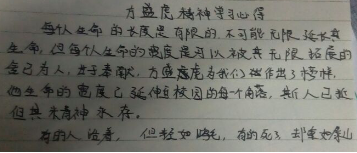 方盛虎精神学习心得
每个人生命的长度是有限的,不可能无限延长其
生命,但每个人生命的宽度是可以被其无限拓展的
舍己为人,甘于奉献,方盛虎为我们作出了榜样,
他生命的宽度已延伸至校园的每个角落,其人已逝
但其精神永存。
有的人活着,但轻如鸿毛,有的死了却重如泰山